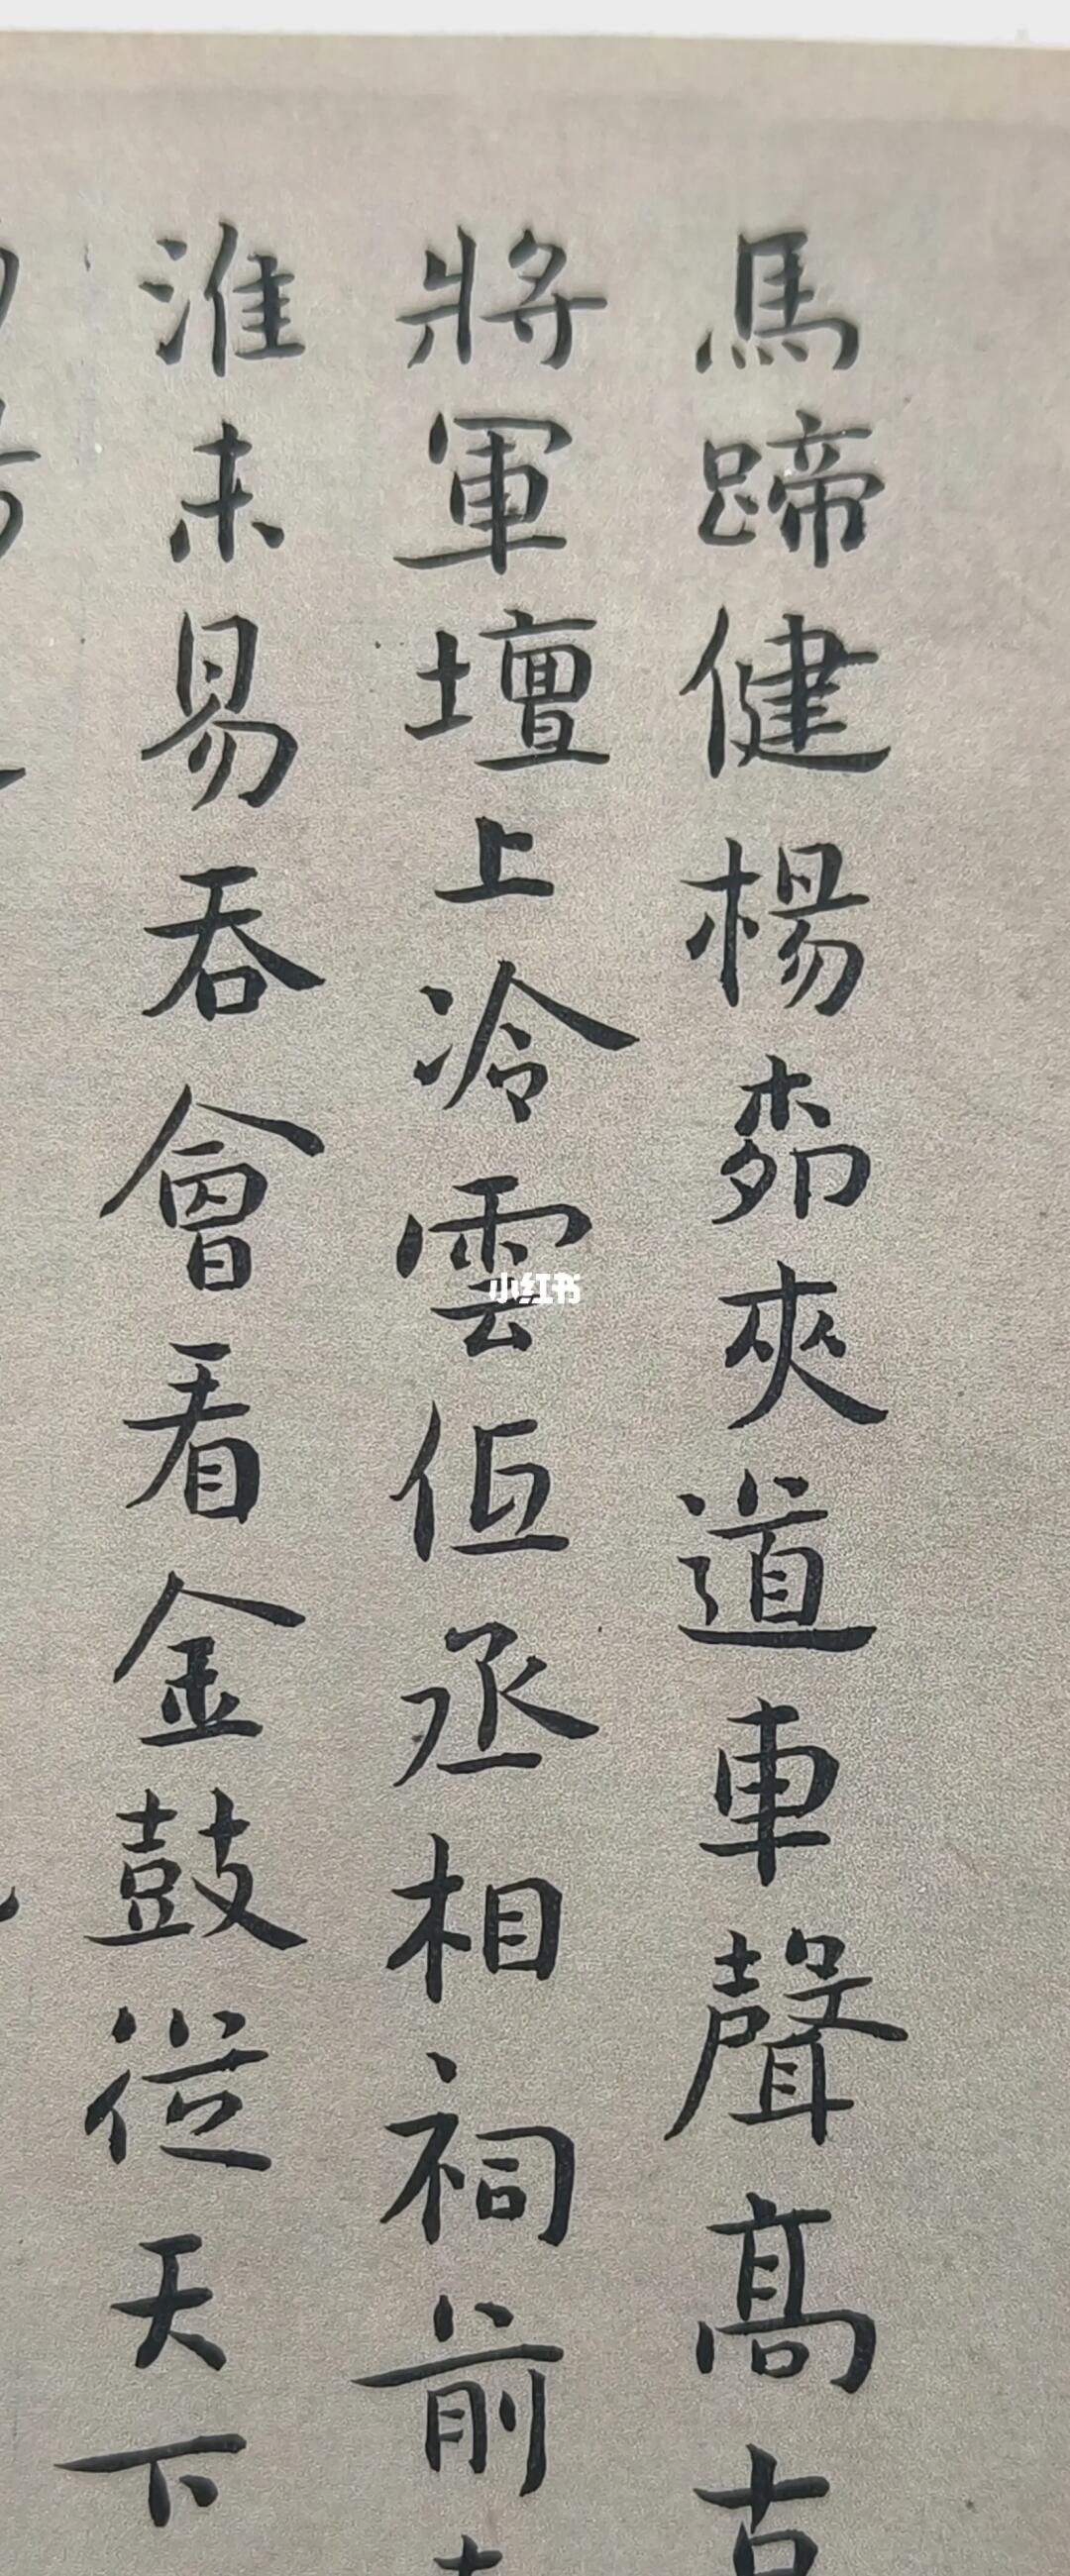 馬蹄健楊桺夾道車聲髙古
將軍壇上冷雲佰丞相祠前
淮未易吞會看金鼓從天下
小红书